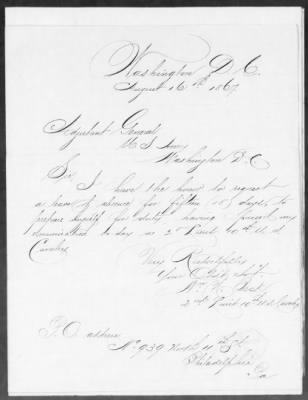 Washington D. C.
August 16th 1867
Adjutant General
U S Army
Washington D. C
Sir
I have the honor to request
a leave of absence for fifteen (15) days, to
prepare myself for duty having received my
to day as 2nd Lieut 10th U. S.
Cavalry
Very Respectfully
Your Obdt. Servt.
Wm.
2nd Lieut 10th U S Cavalry
P. O. address
No 939 North 11th St
Philadelphia
Pa